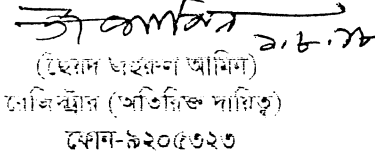 ১.৮.১৮
(সৈয়দ জহরুল আমিন)
রেজিস্ট্রার (অতিরিক্ত দায়িত্ব)
ফোন-৯২০৫৩২৩